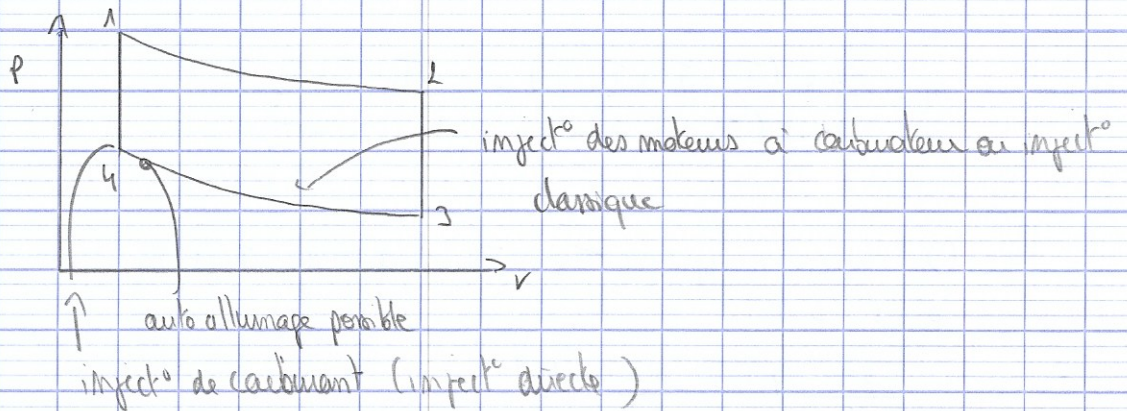 1
P
2
inject° des moteurs à carburateur ou inject°
classique
4
3
V
auto allumage possible
inject° de carburant (inject° directe)